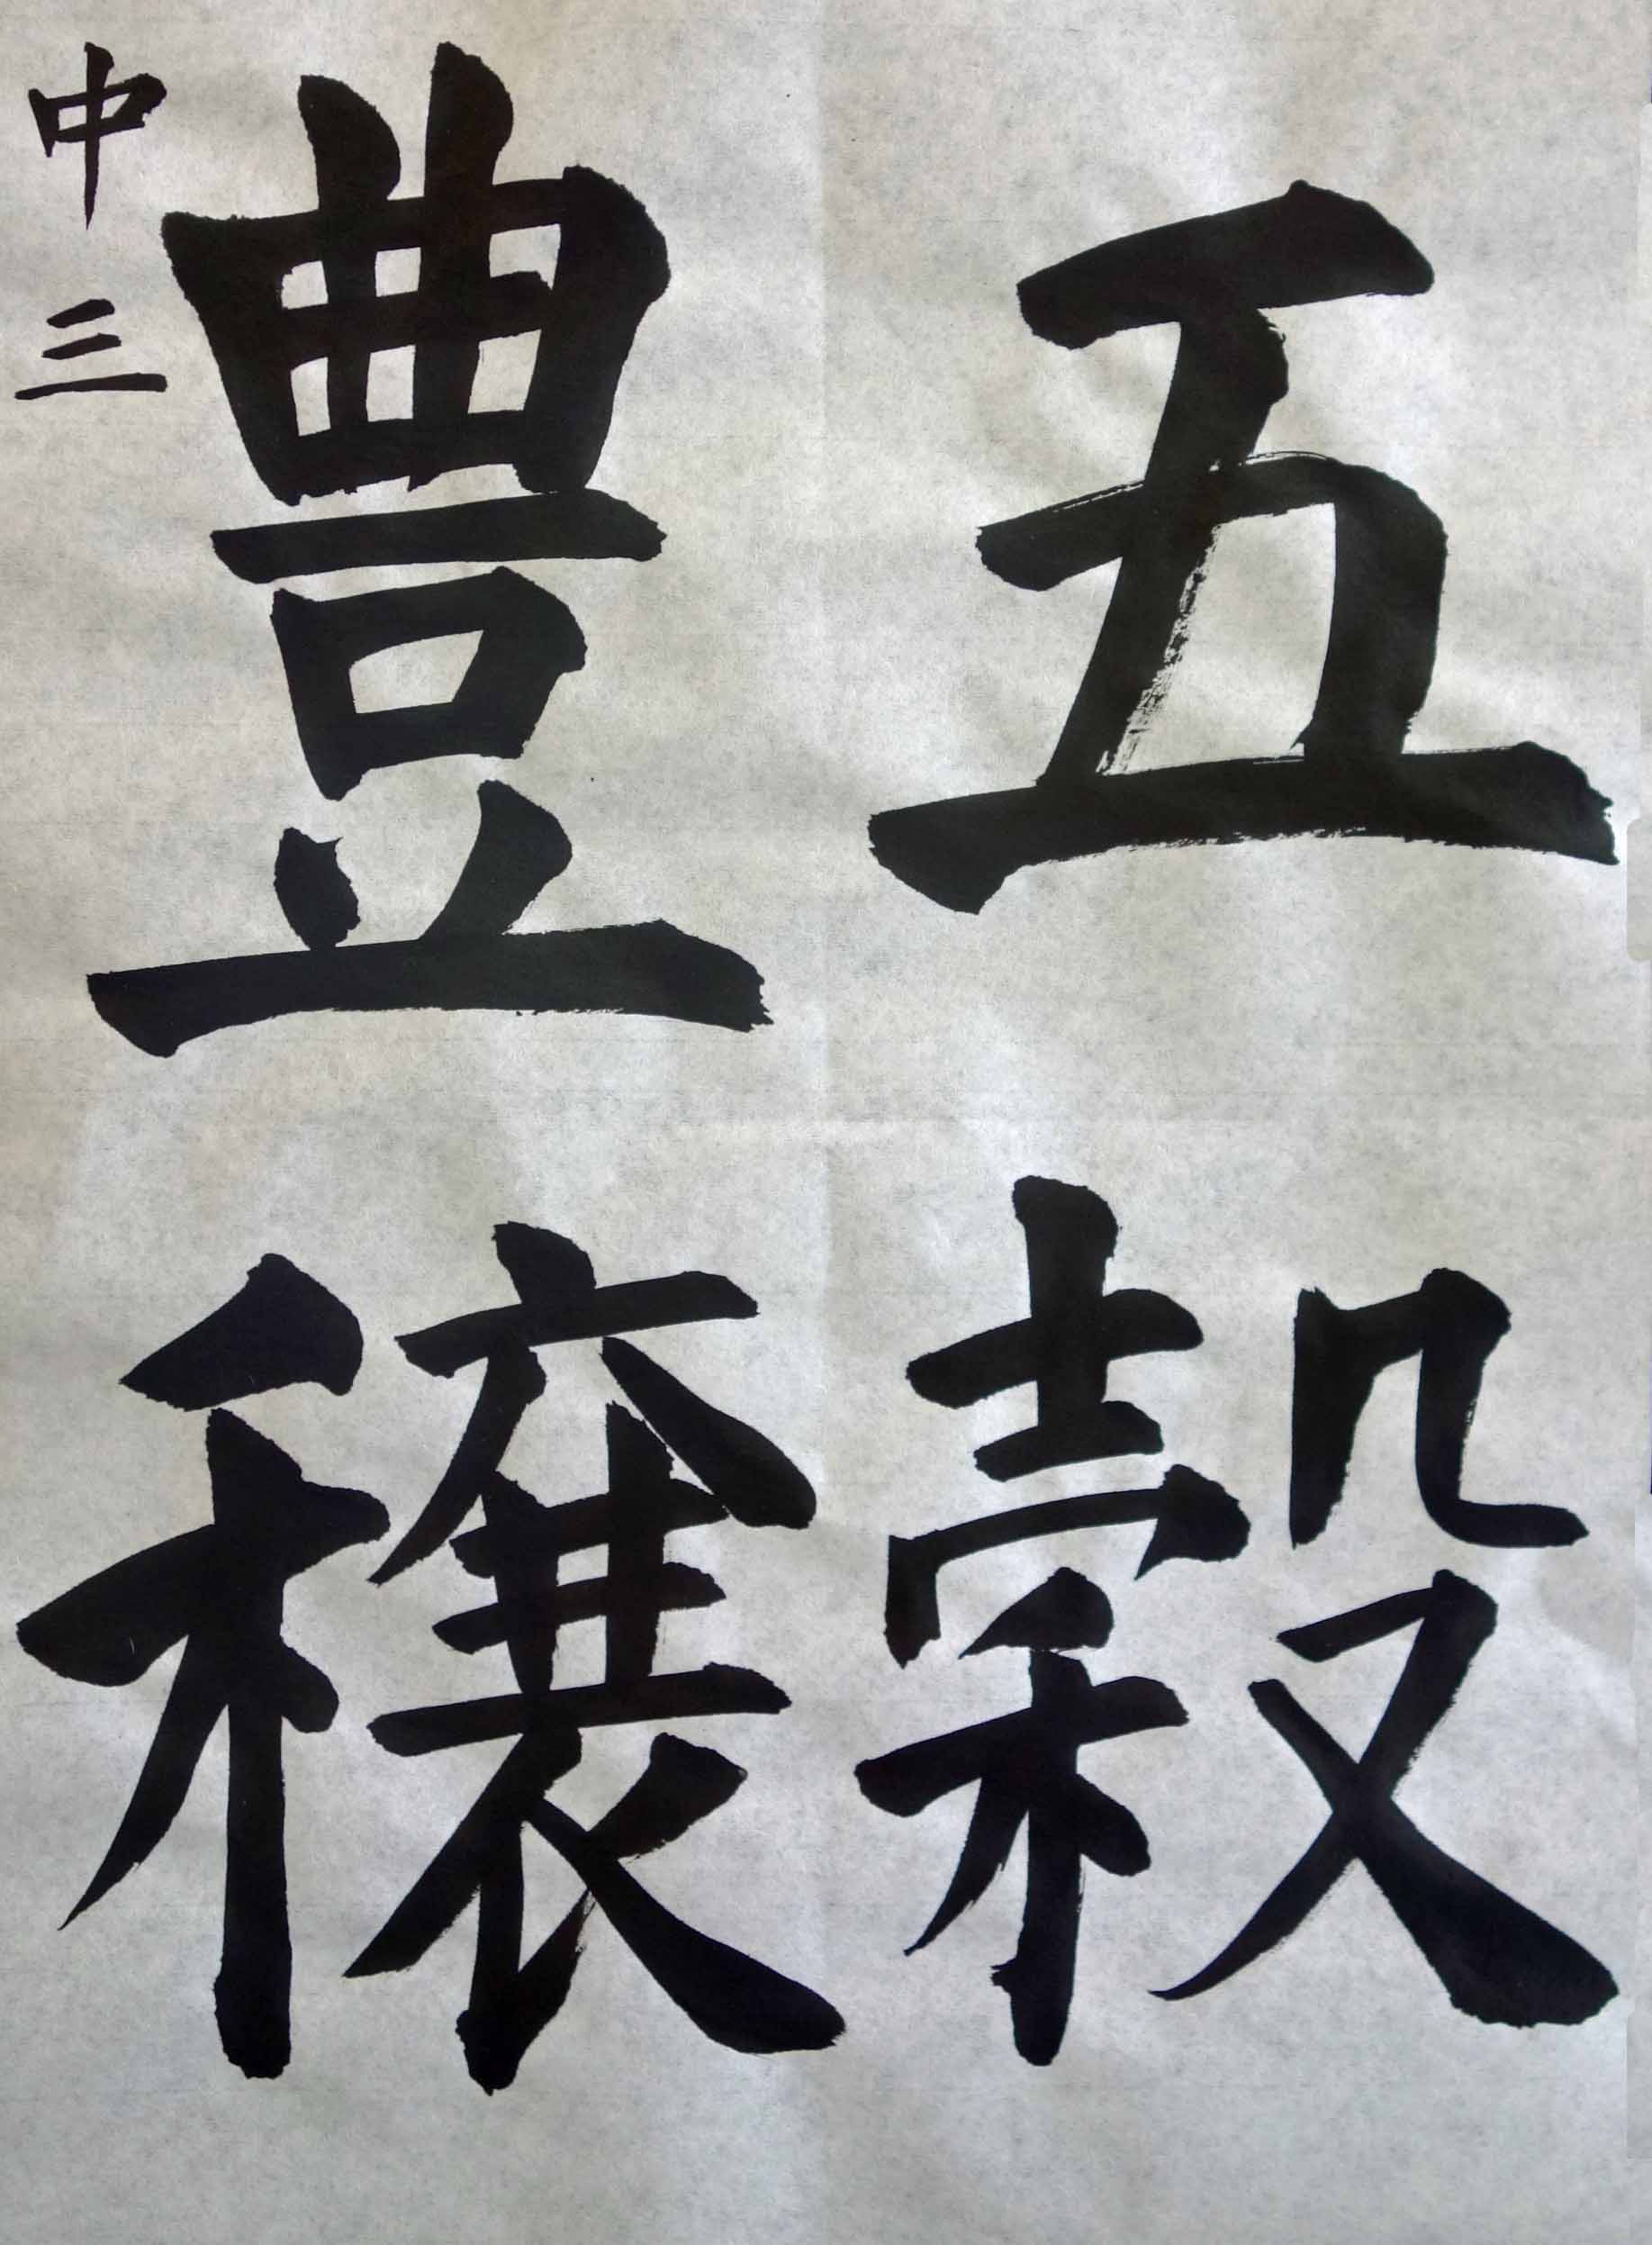 五穀
豊穣
中三